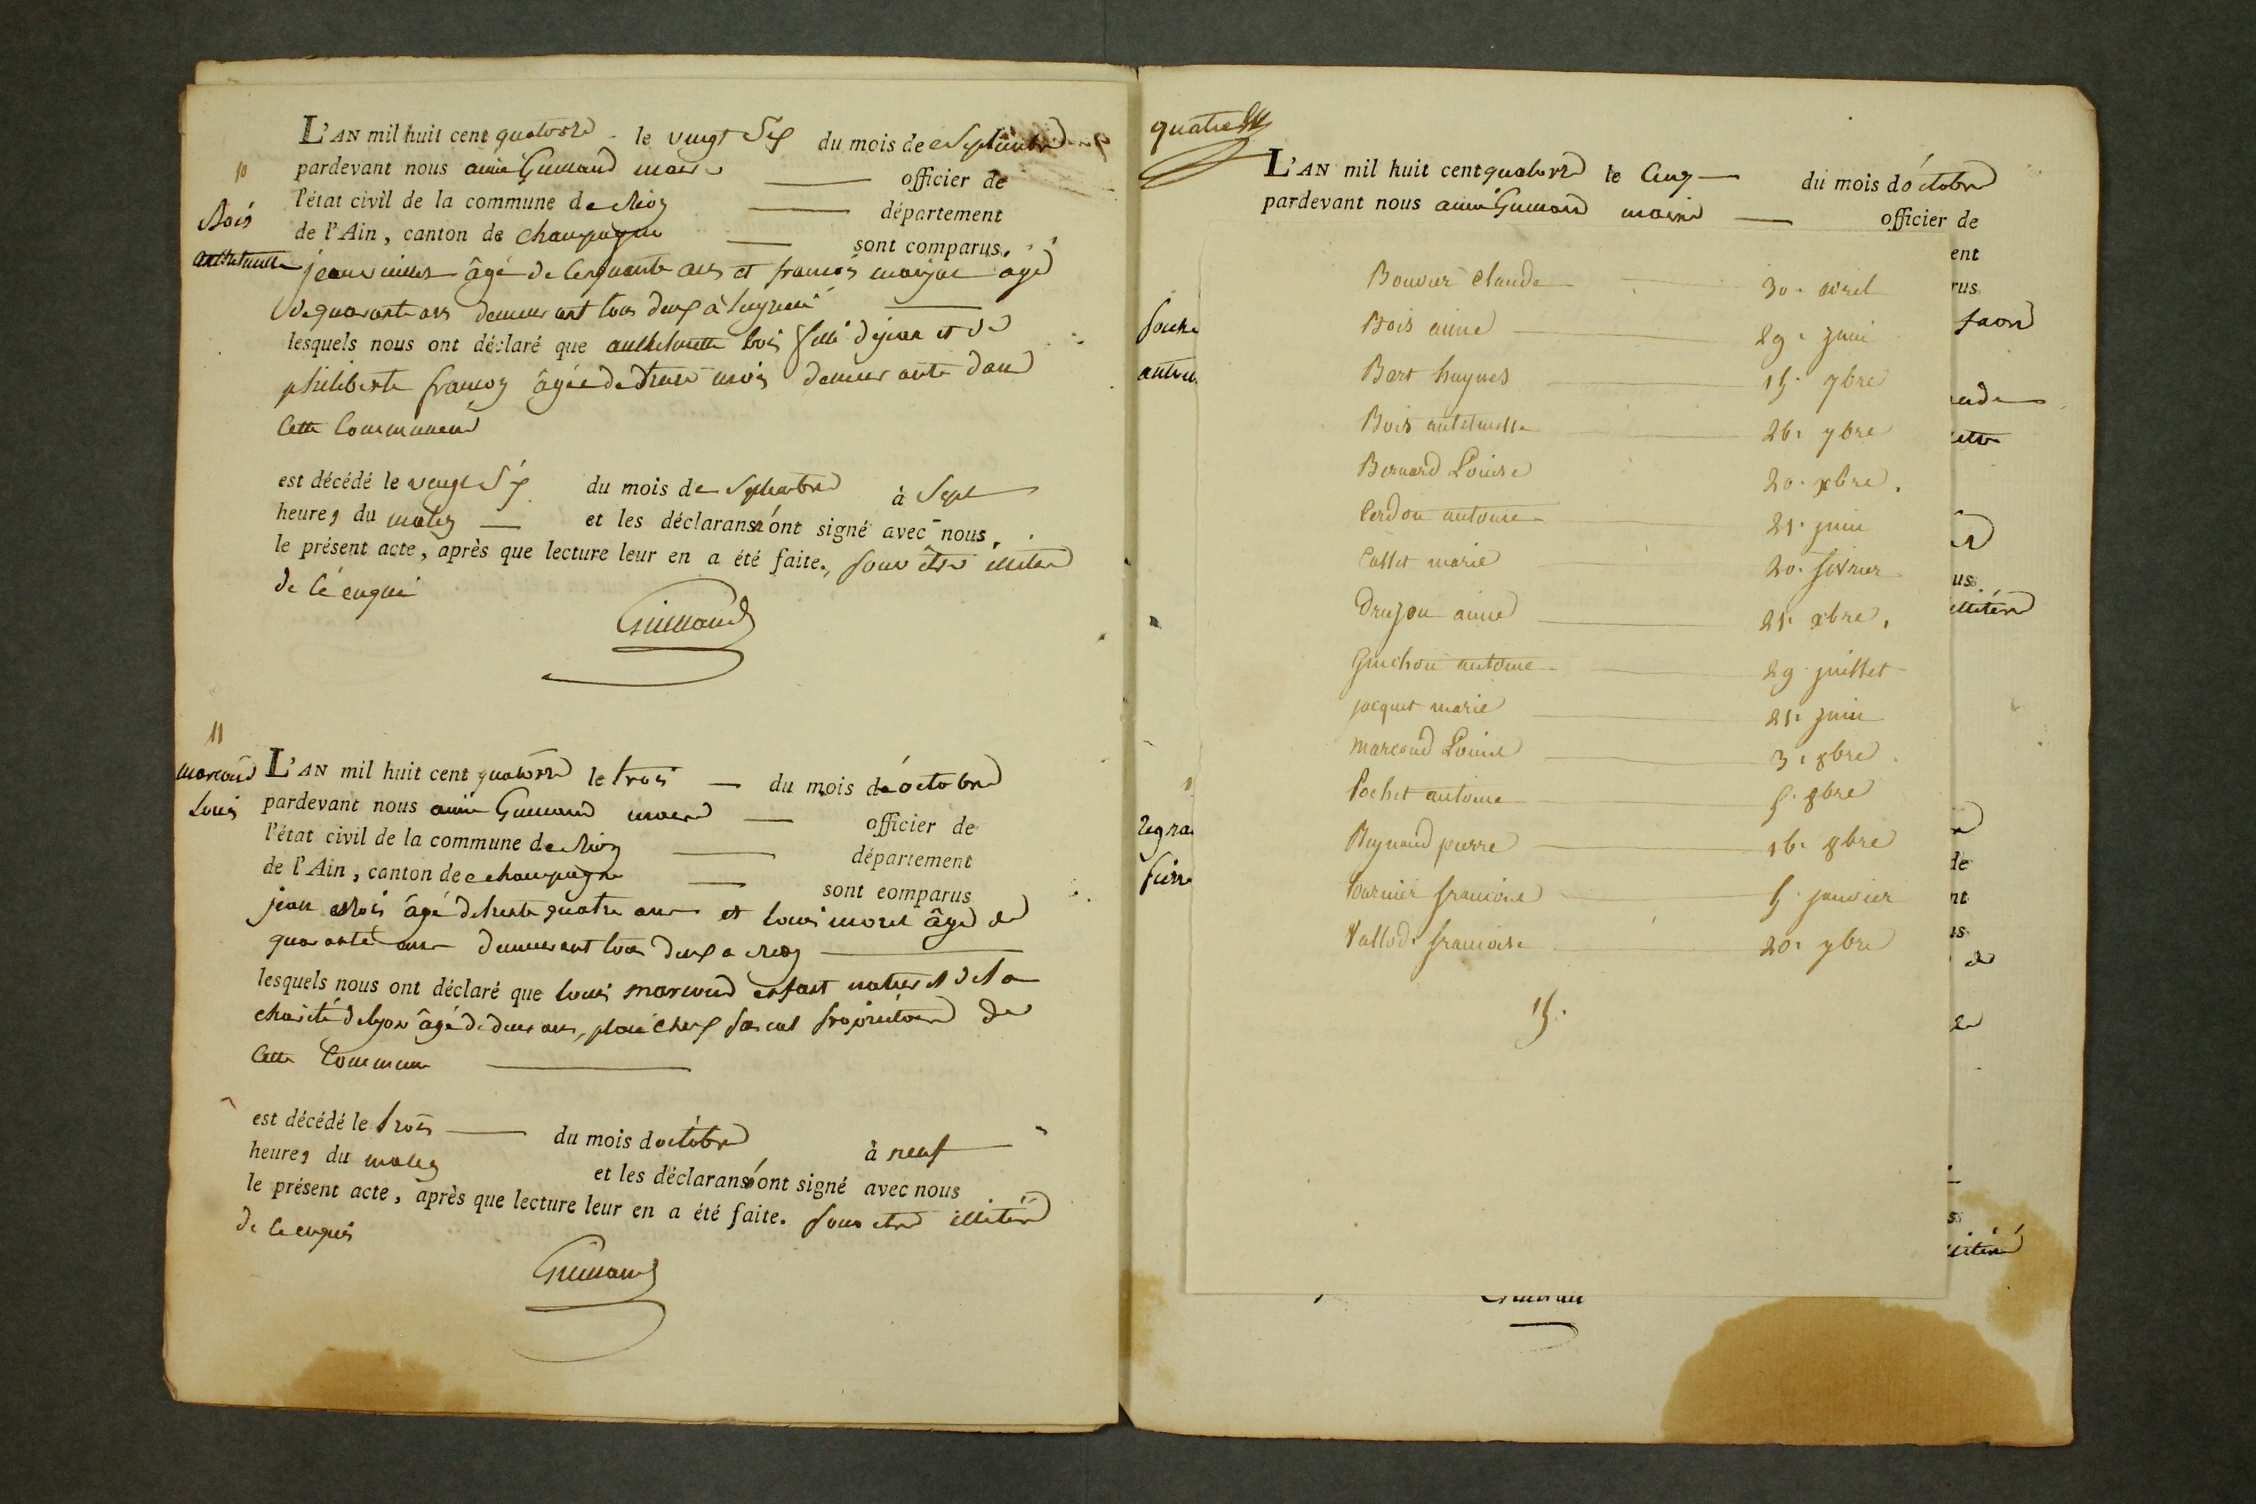 10
Bois
anthelmette
L'AN mil huit cent quatorze le vingt Six du mois de Septembre
pardevant nous aimé Guinand maire officier de
l'état civil de la commune de département
de l'Ain, canton de champagne sont comparus
jean âgé de Cinquante ans et françois âgé
de quarante ans demeurant tous deux à
lesquels nous ont déclaré que anthelmette bois fille de jean et de
philiberte françoy âgée de mois demeurante dans
Cette Commune
est décédé le vingt Six du mois de Septembre à Sept
heures du matin et les déclarans n'ont signé avec nous,
le présent acte, après que lecture leur en a été faite, pour être illitéré
de ce enquis
Guinand
11
marcoud
Louis
L'AN mil huit cent quatorze le trois du mois de octobre
pardevant nous aimé Guinand maire officier de
l'état civil de la commune de département
de l'Ain, canton de champagne sont comparus
jean Bois âgé de trente quatre ans et louis moret âgé de
quarante ans demeurant tous deux a
lesquels nous ont déclaré que louis marcoud enfant naturel de la
charité de lyon âgé de deux ans, placé chez pascal propriétaire de
Cette Commune
est décédé le trois du mois d octobre à neuf
heures du matin et les déclarans n'ont signé avec nous
le présent acte, après que lecture leur en a été faite. pour etre illitéré
de ce enquis
Guinand
quatre
L'AN mil huit cent quatorze le Cinq du mois d'octobre
pardevant nous aimé Guinand maire officier de
ent
rus
Bouvier Claude 30. avril
Bois aimé 29. juin
Bert huynes 15. 7bre
Bois antelmette 26. 7bre
Bernard Louise 20. xbre.
Cerdon antoine 21. juin
Callet marie 20. février
Drujon aimé 21. xbre.
Guichon antoine 29. juillet
jacquet marie 21. juin
marcoud Louis 3. 8bre.
Pochet antoine 5. 8bre
Reynaud pierre 16. 8bre
tournier françoise 5. janvier
Vallod françoise 20. 7bre
15.
us
illitéré
de
nt
us
de